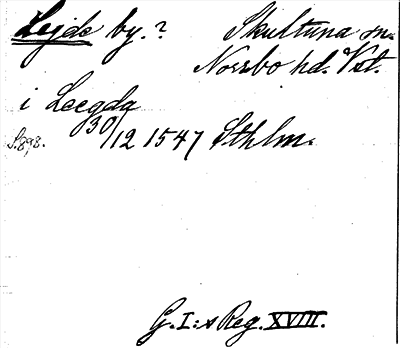 Lejde by.? Skultuna sn.
Norrbo hd. Vst.
i Leegdg
30/12 1547 Sthlm.
S. 898.
G. I:s Reg. XVIII.